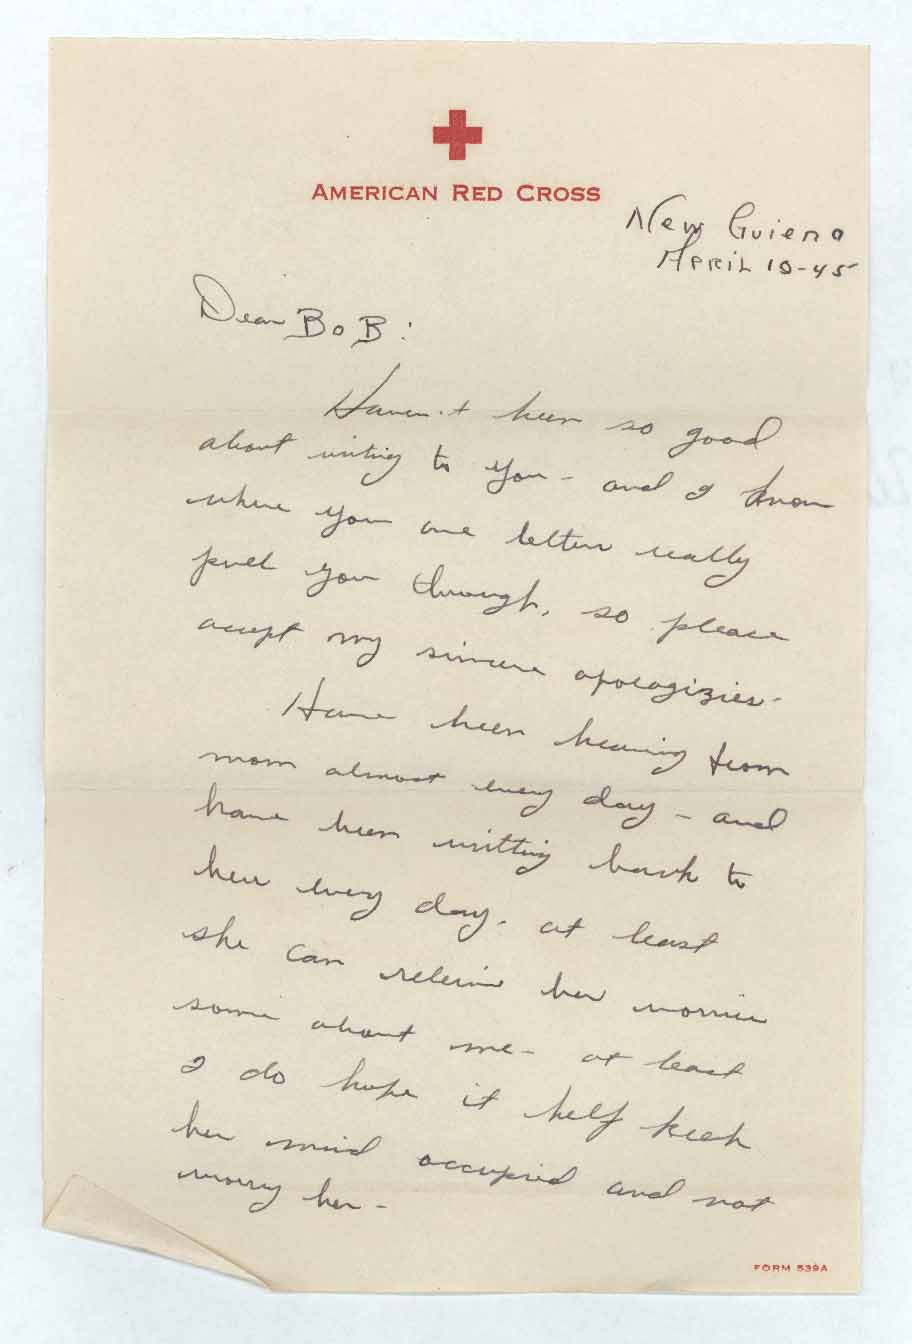 AMERICAN RED CROSS
New Guiena
APRIL 10-45
Dear BoB:
Haven't been so good
about writing to you - and I know
where you are letters really
pull you through, so please
accept my sincere apologizies -
Have been hearing from
mom almost every day - and
have been writting back to
her every day. at least
she can releive her worries
some about me - at least
I do hope it help keep
her mind occupied and not
worry her -
FORM 539A